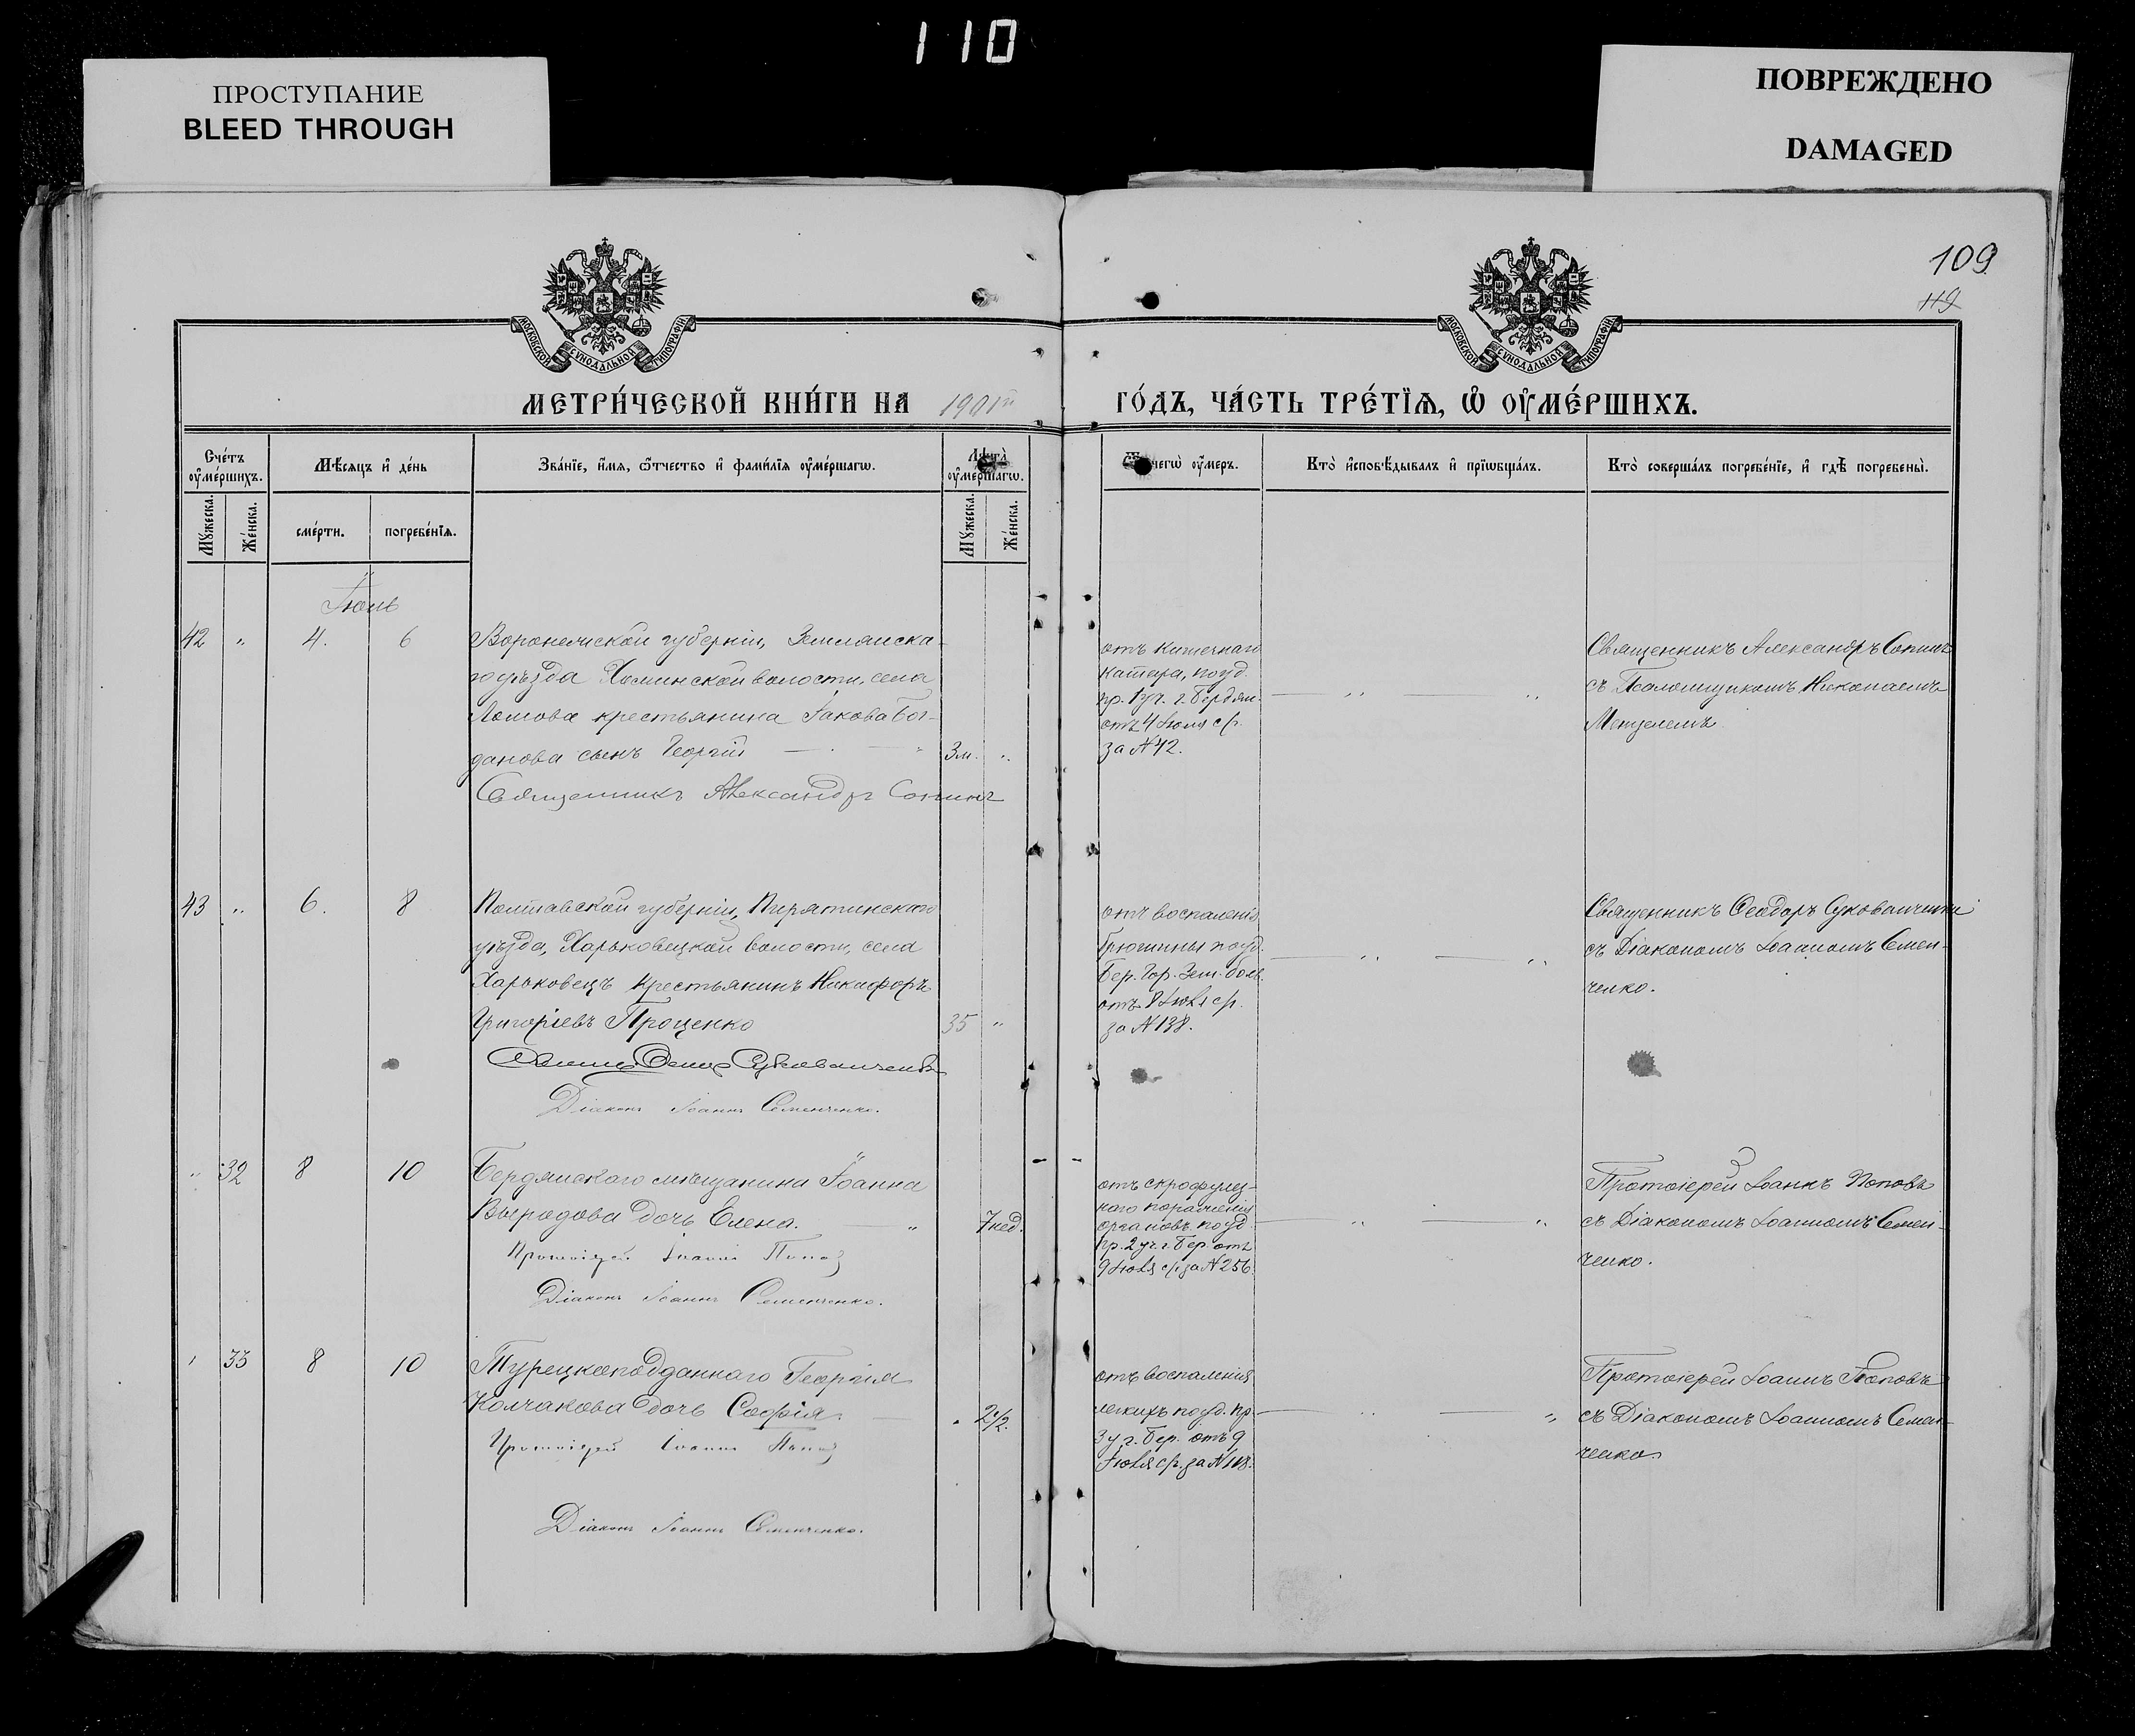 110
ПРОСТУПАНИЕ
BLEED THROUGH
ПОВРЕЖДЕНО
DAMAGED
109
119
МОСКОВСКОЙ СѴНОДАЛЬНОЙ ТИПОГРАФІИ
МОСКОВСКОЙ СѴНОДАЛЬНОЙ ТИПОГРАФІИ
МЕТРИ́ЧЕСКОЙ КНИ́ГИ НА 1901й ГО́ДЪ, ЧА́СТЬ ТРЕ́ТЇѦ, Ѡ ОУ҆МЕ́РШИХЪ.
Сче́тъ оу҆ме́ршихъ.
Мꙋжеска.
Же́нска.
Мѣ́сяцъ и҆ де́нь
сме́рти.
погребе́нїѧ.
Зва́нїе, и҆́мя, ѻ҆́тчество и҆ фами́лїѧ оу҆ме́ршагѡ.
Лѣ́та оу҆ме́ршагѡ.
Мꙋжеска.
Же́нска.
чегѡ̀ оу҆́меръ.
Кто̀ и҆сповѣ́дывалъ и҆ прїѡбща́лъ.
Кто̀ соверша́лъ погребе́нїе, и҆ гдѣ̀ погребены̀.
Іюль
42 " 4. 6
Воронежской губерніи, Землянска-
го уѣзда Хоминской волости, села
Ломова крестьянина Іакова Бог-
данова сынъ Георгій 3 м. "
Священникъ Александръ Сопинъ
отъ кишечнаго
катара, по уд.
вр. 1 уч. г. Бердян.
отъ 4 Іюля с/г.
за № 42.
Священникъ Александръ Сопинъ
съ Псаломщикомъ Николаемъ
43 " 6. 8
Полтавской губерніи, Пирятинскаго
уѣзда, Харьковецкой волости, села
Харьковецъ крестьянинъ Никифоръ
Григоріевъ Проценко 35 "
Діаконъ Іоаннъ Семенченко.
отъ воспаленія
брюшины по уд.
Бер. Гор. Зем. больн.
отъ 8 Іюля с/г.
за № 138.
Священникъ Ѳеодоръ
съ Діакономъ Іоанномъ Семен-
ченко.
" 32 8 10
Бердянскаго мѣщанина Іоанна
Выродова дочь Елена. " 7 нед.
Протоіерей Іоаннъ Поповъ
Діаконъ Іоаннъ Семенченко.
отъ скрофулез-
наго пораженія
органовъ по уд.
вр. 2 уч. г. Бер. отъ
9 Іюля с/г. за № 256.
Протоіерей Іоаннъ Поповъ
съ Діакономъ Іоанномъ Семен-
ченко.
33 8 10
Турецкоподданнаго Георгія
Колчакова дочь Софія. " 2½.
Протоіерей Іоаннъ Поповъ
Діаконъ Іоаннъ Семенченко.
отъ воспаленія
легкихъ по уд. вр.
3 у. г. Бер. отъ 9
Іюля с/г. за № 118.
Протоіерей Іоаннъ Поповъ
съ Діакономъ Іоанномъ Семен-
ченко.